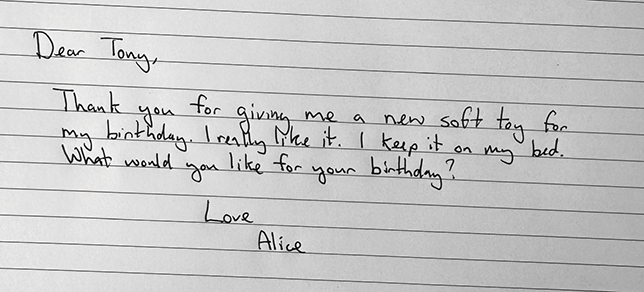 Dear Tony,
Thank you for giving me a new soft toy for
my birthday. I really like it. I keep it on my bed.
What would you like for your birthday?
Love
Alice